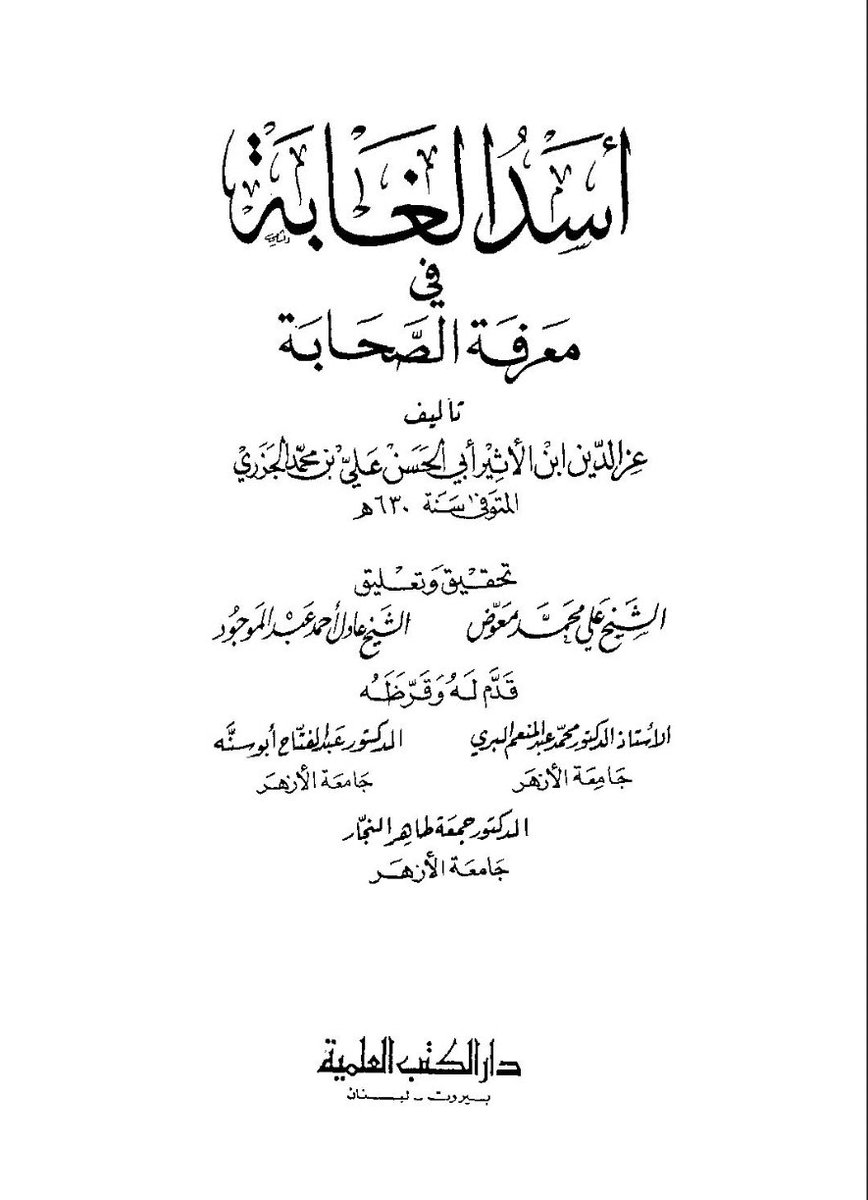 أُسْدُ الغَابَة
في
مَعرفَة الصَّحَابَة
تأليف
عِز الدِّين ابْن الأثِير أبي الحَسَنْ عَليّ بْن محمَّد الجَزَري
المتوفى سَنَة ٦٣٠ هـ
تحقيق وَتعليق
الشيخ علي محمَّد معوّض الشيخ عادل أحمد عبْد الموجُود
قدَّم لَهُ وَقرّظَهُ
الأستاذ الدكتور محمّد عبد المنعم البري الدكتور عبد الفتّاح أبو سنّه
جَامِعَة الأزهَر جَامعَة الأزهَر
الدكتور جمعَة طاهِر النجّار
جَامعَة الأزهَر
دار الكتب العلمية
بيروت - لبنان